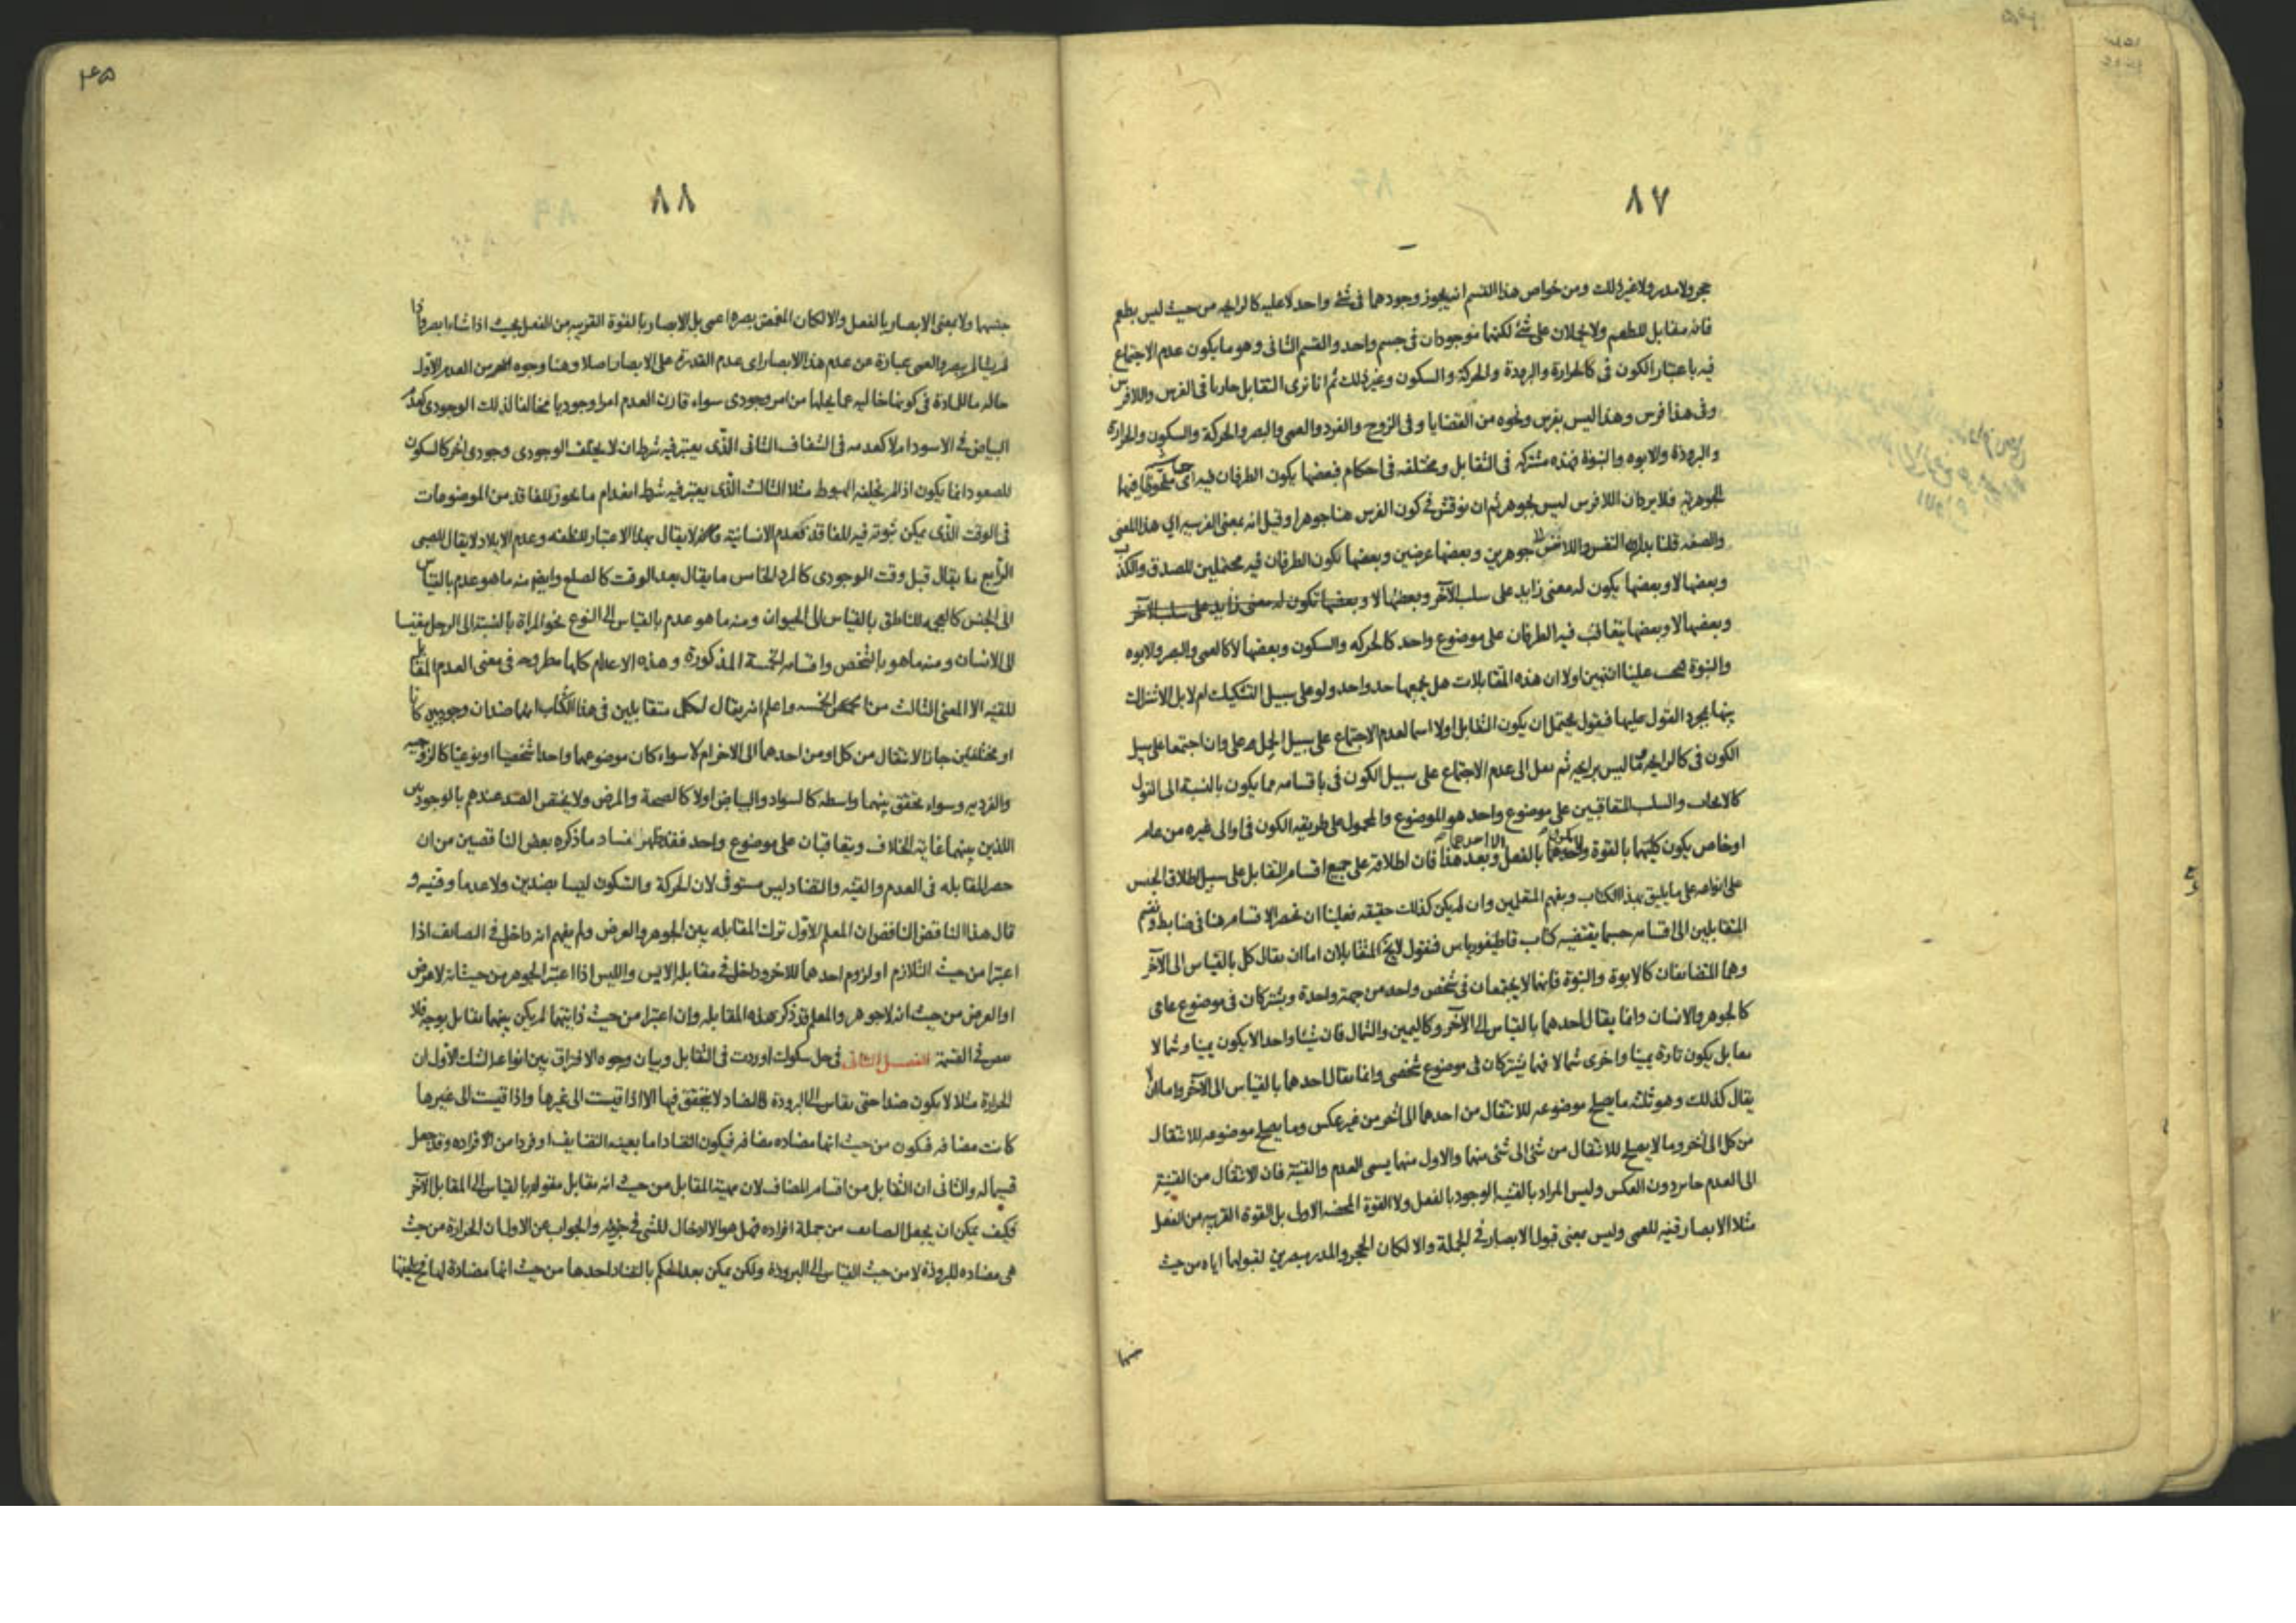 ٨٧
حجر ولا مدر ولا غير ذلك ومن خواص هذا القسم انه يجوز وجودهما فى شئ واحد لا عليه كالرايحه من حيث ليس بطعم
فانه مقابل للطعم ولا يحملان على شئ لكنهما موجودان فى جسم واحد والقسم الثانى وهو ما يكون عدم الاجتماع
فيه باعتبار الكون فى كالحرارة والبرودة والحركة والسكون وغير ذلك ثم انا نرى التقابل جاريا فى الفرس واللافرس
وفى هذا فرس وهذا ليس بفرس ونحوه من القضايا وفى الزوج والفرد والعمى والبصر والحركة والسكون والحرارة
والبرودة والابوه والبنوة فهذه مشتركه فى التقابل ومختلفه فى احكام فبعضها يكون الطرفان فيه اى فيها
الجوهريه فلا يرد ان اللافرس ليس بجوهر ثم ان نوقش فى كون الفرس هنا جوهرا وقيل انه بمعنى الفرسيه اى هذا المعنى
والصفه قلنا بدله النفس واللانفس جوهرين وبعضها عرضين وبعضها يكون الطرفان فيه محتملين للصدق والكذب
وبعضها لا وبعضها يكون له معنى زايد على سلب الآخر وبعضها لا وبعضها تكون له معنى زايد على سلب الآخر
وبعضها لا وبعضها يتعاقب فيه الطرفان على موضوع واحد كالحركه والسكون وبعضها لا كالعمى والبصر والابوه
والبنوة فيجب علينا ان نبين اولا ان هذه المتقابلات هل يجمعها حد واحد ولو على سبيل التشكيك ام لا بل الاشتراك
بينها بمجرد القول عليها فنقول يحتمل ان يكون التقابل اولا اسما لعدم الاجتماع على سبيل الحمل على وان اجتمعا على سبيل
الكون فى كالرايحه مما ليس برايحه ثم نقل الى عدم الاجتماع على سبيل الكون فى باقسامه مما يكون بالنسبة الى القول
كالايجاب والسلب المتعاقبين على موضوع واحد هو الموضوع والمحمول على طريقه الكون فى او الى غيره من عام
او خاص يكون كليهما بالقوة ولا يكون الا احدهما بالفعل وبعد هذا فان اطلاقه على جميع اقسام التقابل على سبيل اطلاق الجنس
على انواعه على ما يليق بهذا الكتاب وبفهم المتعلمين وان لم يكن كذلك حقيقه فعلينا ان نحصر الاقسام هنا فى ضابط ونقسم
المتقابلين الى اقسامه حسبما يقتضيه كتاب قاطيغورياس فنقول المتقابلان اما ان يقال كل بالقياس الى الآخر
وهما المتضايفان كالابوة والبنوة فانهما لا يجتمعان فى شخص واحد من جهة واحدة ويشتركان فى موضوع عامى
كالجوهر والانسان وانما يقال احدهما بالقياس الى الآخر وكاليمين والشمال فان شيئا واحدا لا يكون يمينا وشمالا
معا بل يكون تارة يمينا واخرى شمالا فهما يشتركان فى موضوع شخصى وانما يقال احدهما بالقياس الى الآخر واما ان لا
يقال كذلك وهو ثلثه ما يصلح موضوعه للانتقال من احدهما الى الآخر من غير عكس وما يصلح موضوعه للانتقال
من كل الى الآخر وما لا يصلح للانتقال من شئ الى شئ منهما والاول منهما يسمى العدم والقنية فان الانتقال من القنية
الى العدم جايز دون العكس وليس المراد بالقنيه الوجود بالفعل ولا القوة المحضه الاول بل القوة القريبه من الفعل
مثلا الابصار قنيه للعمى وليس بمعنى قبول الابصار فى الجملة والا لكان الحجر والمدر بصيرين لقبولهما اياه من حيث
جنسها
٨٨
جنسهما ولا بمعنى الابصار بالفعل والا لكان المغمض بصره اعمى بل الابصار بالقوة القريبه من الفعل بحيث اذا شاء ابصر واذا
لم يشأ لم يبصر والعمى عبارة عن عدم هذا الابصار اى عدم القدرة على الابصار اصلا وهنا وجوه اخر من العدم الاول
حاله ما للمادة فى كونها خاليه عما يحلها من امر وجودى سواء قارن العدم امرا وجوديا مخالفا لذلك الوجودى كعدم
البياض فى الاسود ام لا كعدمه فى الشفاف الثانى الذى يعتبر فيه شرط ان لا يخلف الوجودى وجودى آخر كالسكون
للصعود انما يكون اذا لم يخلفه الهبوط مثلا الثالث الذى يعتبر فيه شرط انعدام ما يجوز للفاقد من الموضوعات
فى الوقت الذى يمكن ثبوته فيه للفاقد فعدم الانسانية لا يقال بهذا الاعتبار للنطفه وعدم الايلاد لا يقال للصبى
الرابع ما يقال قبل وقت الوجودى كالمرد الخامس ما يقال بعد الوقت كالصلع وايضا منه ما هو عدم بالقياس
الى الجنس كالعجمه للناطق بالقياس الى الحيوان ومنه ما هو عدم بالقياس الى النوع نحو المراة بالنسبة الى الرجل مقيسا
الى الانسان ومنه ما هو بالشخص واقسامه الخمسة المذكورة وهذه الاعدام كلها مطروحه فى معنى العدم المقابل
للقنيه الا المعنى الثالث من الخمسه واعلم انه يقال لكل متقابلين فى هذا الكتاب انهما ضدان وجوديين كانا
او مختلفين جاز الانتقال من كل او من احدهما الى الاخر ام لا سواء كان موضوعهما واحدا شخصيا او نوعيا كالزوجيه
والفرديه وسواء تحقق بينهما واسطه كالسواد والبياض اولا كالصحة والمرض ولا يختص الضد عندهم بالوجوديين
اللذين بينهما غاية الخلاف ويتعاقبان على موضوع واحد فقد ظهر فساد ما ذكره بعض الناقضين من ان
حصر المقابله فى العدم والقنيه والتضاد ليس مستوفى لان الحركة والسكون ليسا بضدين ولا عدما وقنيه و
قال هذا الناقض الناقض ان المعلم الاول ترك المقابله بين الجوهر والعرض ولم يفهم انه داخل فى المضاف اذا
اعتبرا من حيث التلازم او لزوم احدهما للاخر وداخل فى مقابله الايس والليس اذا اعتبر الجوهر من حيث انه لا عرض
او العرض من حيث انه لا جوهر والمعلم قد ذكر هذه المقابله وان اعتبرا من حيث ذاتيهما لم يكن بينهما تقابل بوجه فلا
فى القسمة الفصل الثانى فى حل شكوك اوردت فى التقابل وبيان وجوه الافتراق بين انواعه الشك الاول ان
الحرارة مثلا لا يكون ضدا حتى يقاس الى البرودة فالتضاد لا يتحقق فيها الا اذا قيست الى غيرها واذا قيست الى غيرها
كانت مضافه فيكون من حيث انها مضاده مضافه فيكون التضاد اما بعينه التضايف او فردا من افراده وقد جعل
قسيما له والثانى ان التقابل من اقسام المضاف لان مهية المقابل من حيث انه مقابل مقوله بالقياس الى المقابل الآخر
فكيف يمكن ان يجعل المضاف من جملة افراده فهل هو الا ادخال للشئ فى جزئيه والجواب عن الاول ان الحرارة من حيث
هى مضاده للبرودة لا من حيث القياس الى البرودة ولكن يمكن بعد الحكم بالتضاد احدها من حيث انها مضادة لها